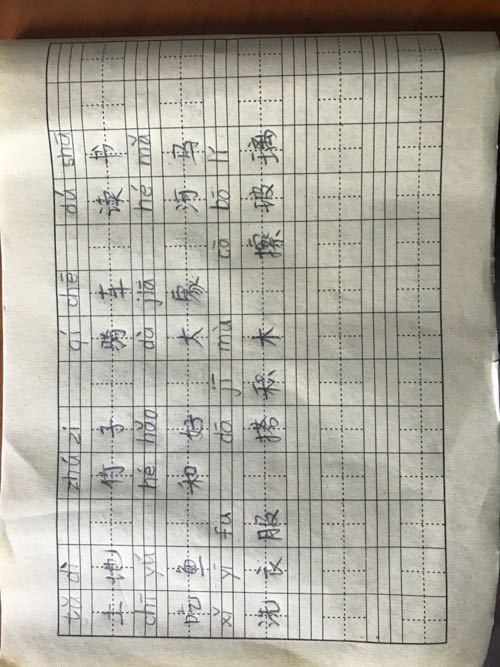 tǔ dì zhú zi qí chē dú shū
土地 竹子 骑车 读书
chī yú hé hǎo dà jiā hé mǎ
吃鱼 和好 大家 河马
xǐ yī fu dā jī mù cā bō lí
洗衣服 搭积木 擦玻璃